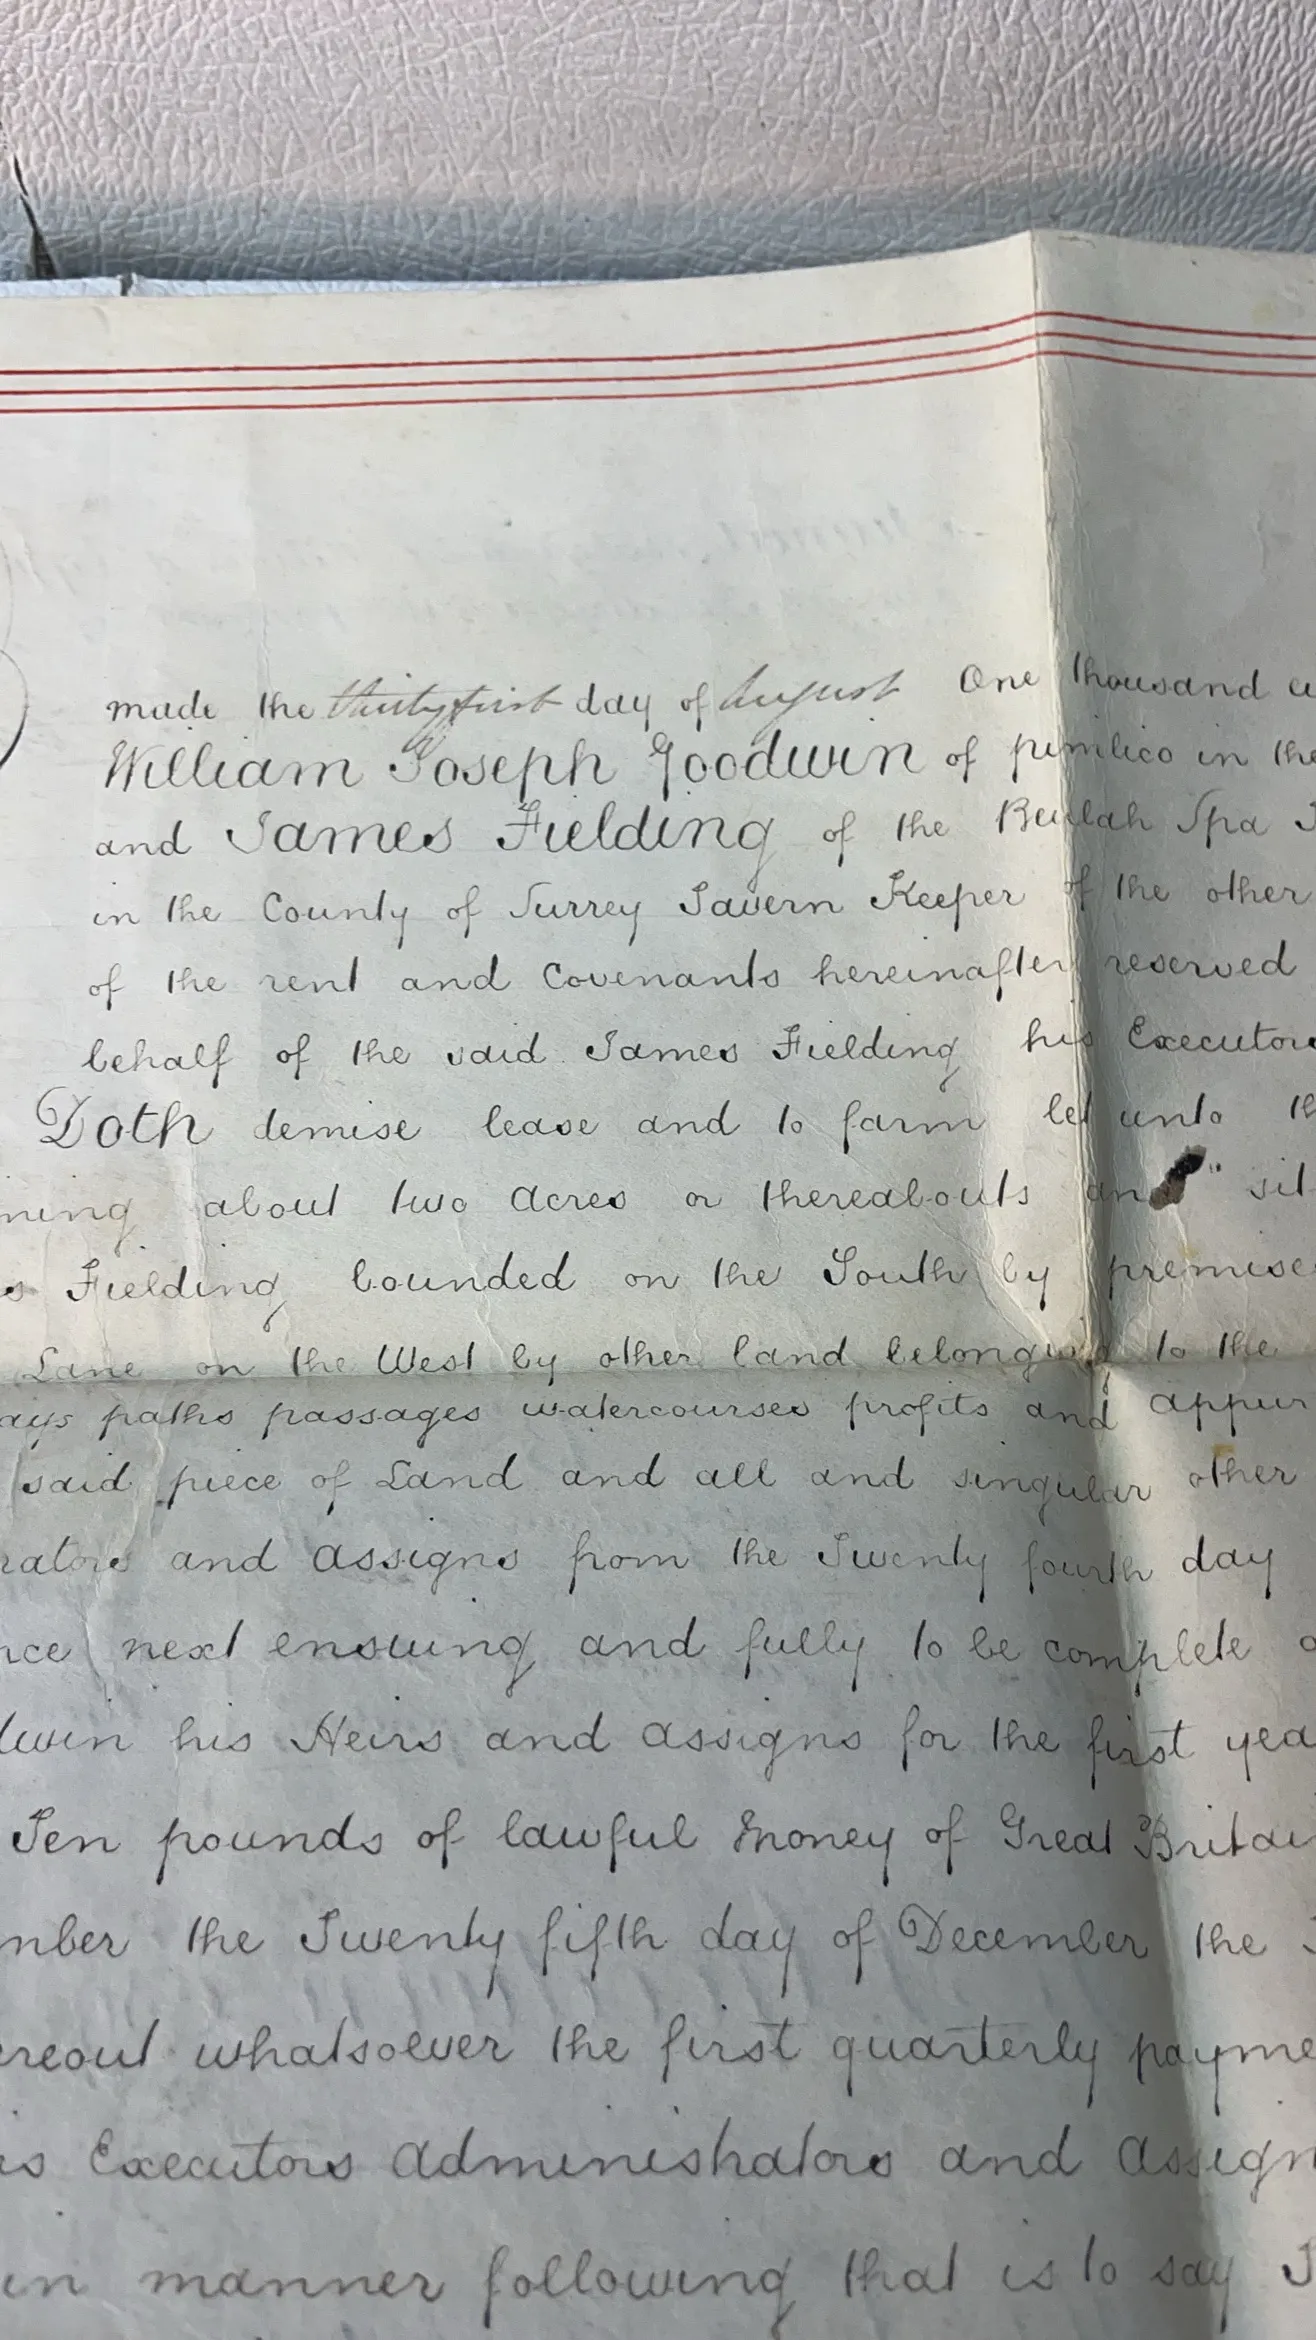 made the thirty first day of August One thousand
William Joseph Goodwin of Pimlico in the
and James Fielding of the Beulah Spa
in the County of Surrey Tavern Keeper of the other
of the rent and Covenants hereinafter reserved
behalf of the said James Fielding his Executors
Doth demise lease and to farm let unto th
ning about two Acres or thereabouts and sit
s Fielding bounded on the South by premises
Lane on the West by other land belonging to the
ays paths passages watercourses profits and appur
said piece of Land and all and singular other
rators and assigns from the Twenty fourth day
nce next ensuing and fully to be complete
dwin his Heirs and assigns for the first yea
Ten pounds of lawful money of Great Britain
mber the Twenty fifth day of December the
ereout whatsoever the first quarterly payme
is Executors Administrators and Assign
in manner following that is to say